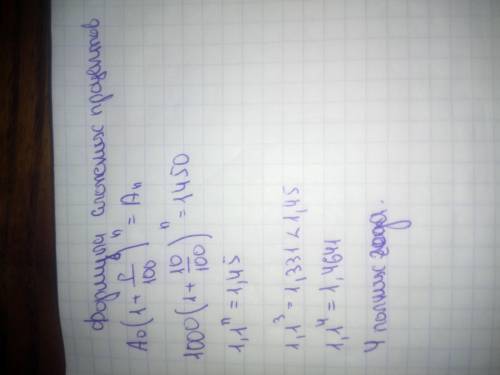 формула сложных процентов
A₀(1 + r/100)ⁿ = Aₙ
1000(1 + 10/100)ⁿ = 1450
1,1ⁿ = 1,45
1,1³ = 1,331 < 1,45
1,1⁴ = 1,4641
4 полних года.